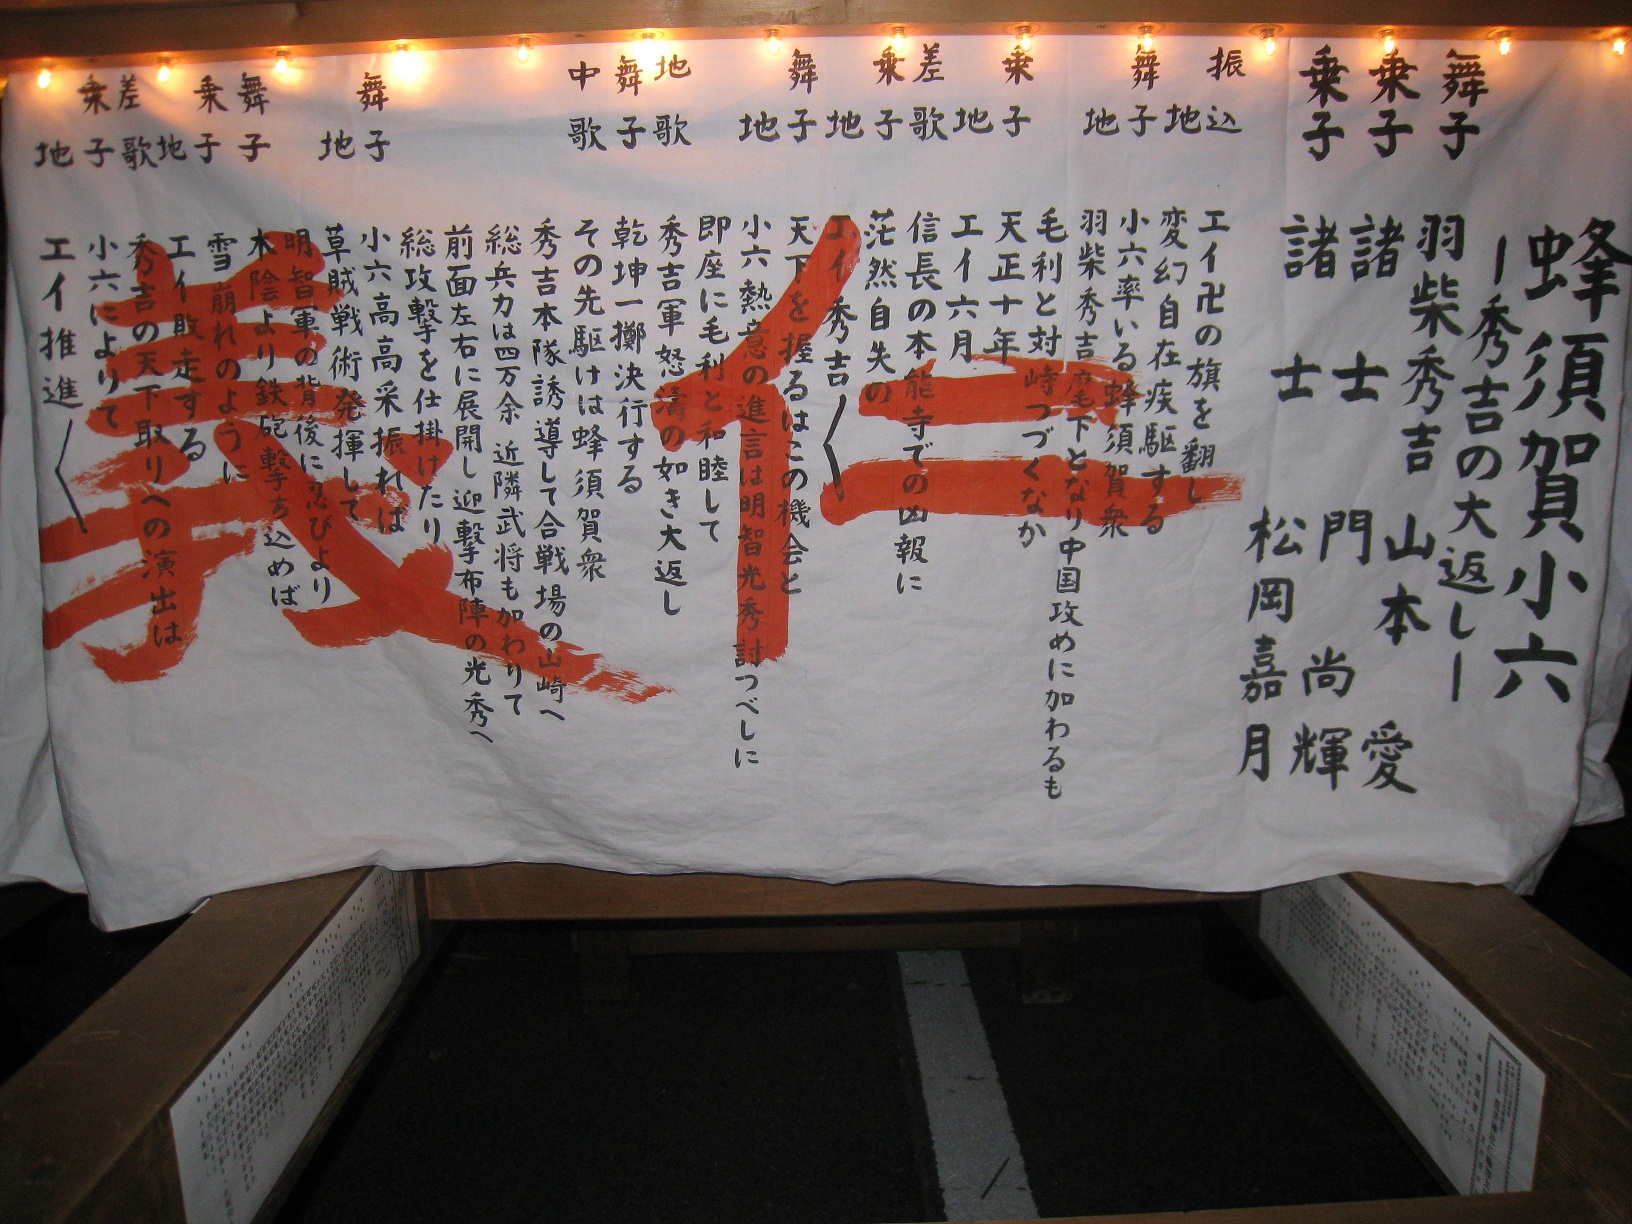 蜂須賀小六
―秀吉の大返し―
舞子 羽柴秀吉 山本 愛
乗子 諸士 門 尚輝
乗子 諸士 松岡嘉月
振込 エイ卍の旗を翻し
地 変幻自在疾駆する
舞子 小六率いる蜂須賀衆
地 羽柴秀吉麾下となり中国攻めに加わるも
毛利と対峙つづくなか
乗子 天正十年
地 エイ六月
差歌 信長の本能寺での凶報に
乗子 茫然自失の
地 エイ秀吉〱
舞子 天下を握るはこの機会と
地 小六熱意の進言は明智光秀討つべしに
即座に毛利と和睦して
地歌 秀吉軍怒濤の如き大返し
舞子 乾坤一擲決行する
中歌 その先駆けは蜂須賀衆
秀吉本隊誘導して合戦場の山崎へ
総兵力は四万余 近隣武将も加わりて
前面左右に展開し迎撃布陣の光秀へ
総攻撃を仕掛けたり
舞子 小六高高采振れば
地 草賊戦術発揮して
明智軍の背後に忍びより
舞子 木陰より鉄砲撃ち込めば
乗子 雪崩れのように
地 エイ敗走する
差歌 秀吉の天下取りへの演出は
乗子 小六によりて
地 エイ推進〱
仁義